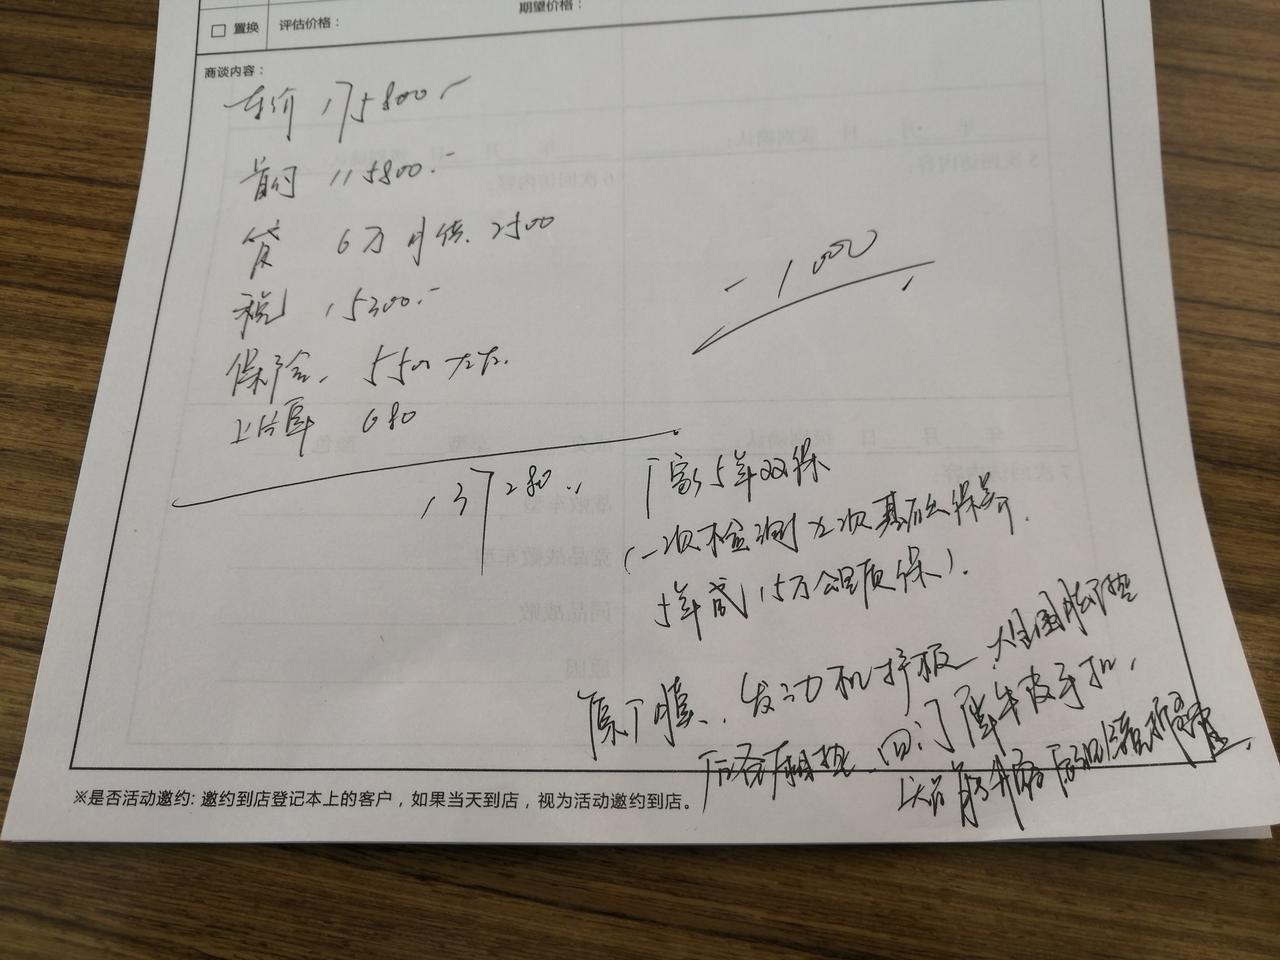 期望价格：
置换 评估价格：
商谈内容：
车价 175800.-
首付 115800.-
贷 6万 月供. 2500
税 15300.-
保险. 5500左右.
上牌 680
-1000
137280..
厂家5年双保
(一次检测 五次基础保养.
5年或15万公里质保).
原厂膜.. 发动机护板 大全围脚垫
后备箱垫. 四门 手扣.
※是否活动邀约: 邀约到店登记本上的客户，如果当天到店，视为活动邀约到店。